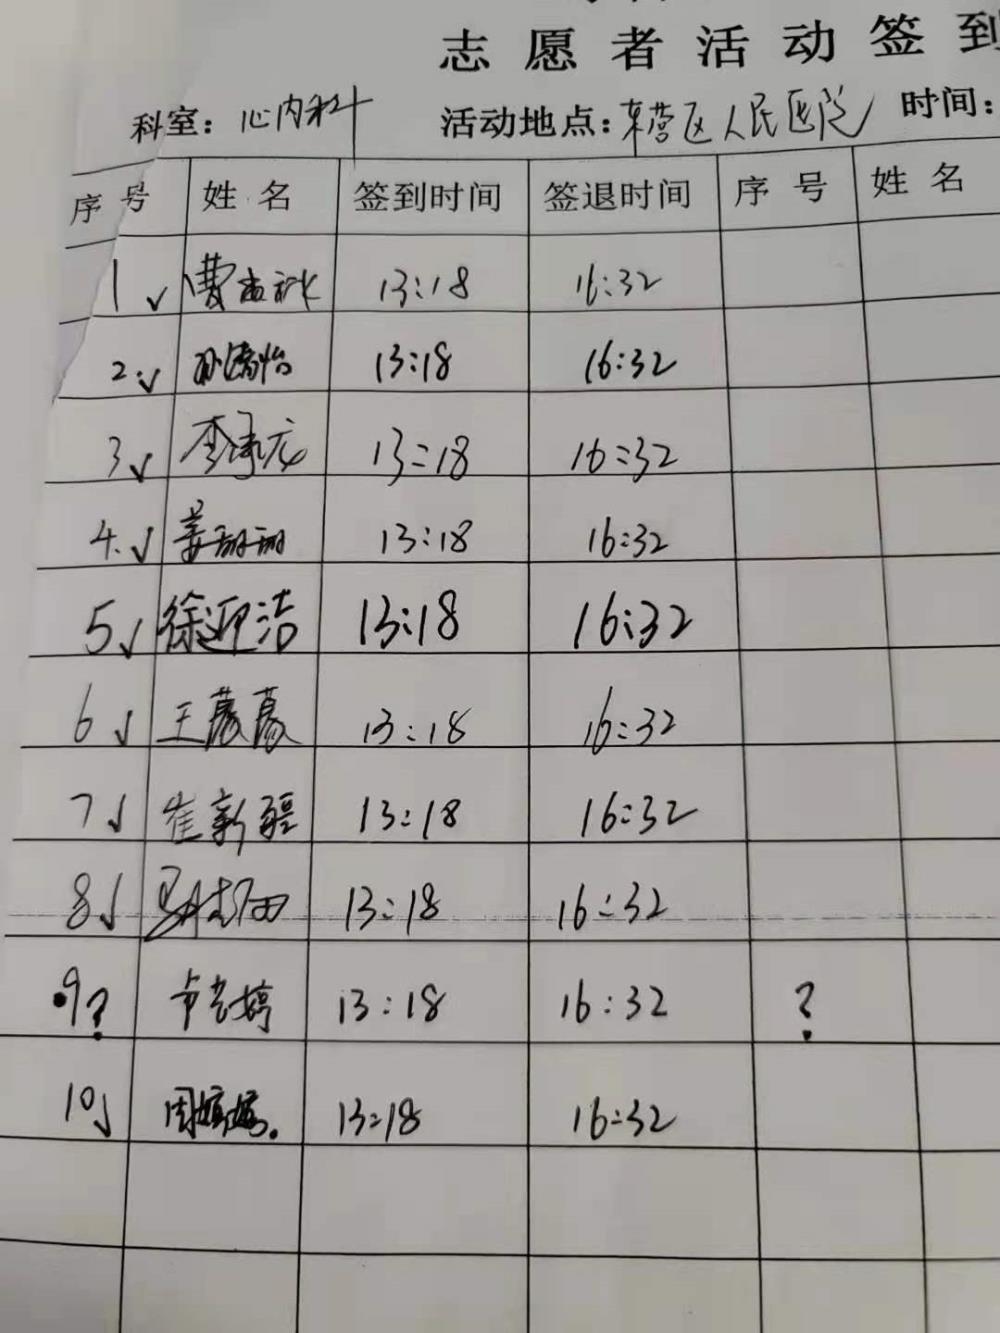 志愿者活动签到
科室：心内科 活动地点：东营区人民医院 时间：
序号 姓名 签到时间 签退时间 序号 姓名
1 √ 费 13:18 16:32
2. √ 孙 怡 13:18 16:32
3 √ 李承龙 13:18 16:32
4. √ 姜珊珊 13:18 16:32
5 √ 徐迎洁 13:18 16:32
6 √ 王蒙蒙 13:18 16:32
7 √ 崔新疆 13:18 16:32
8 √ 13:18 16:32
9 ? 婷 13:18 16:32 ?
10 √ 周 13:18 16:32